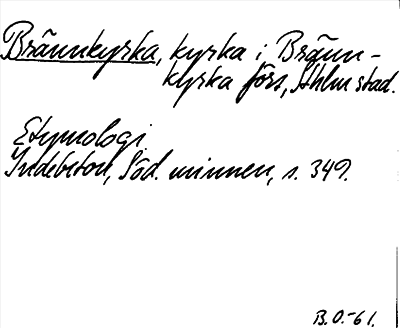 Brännkyrka, kyrka i Bränn-
kyrka förs, Sthlm stad.
Etymologi.
Indebetou, Söd. minnen, s. 349.
B.O.-61.